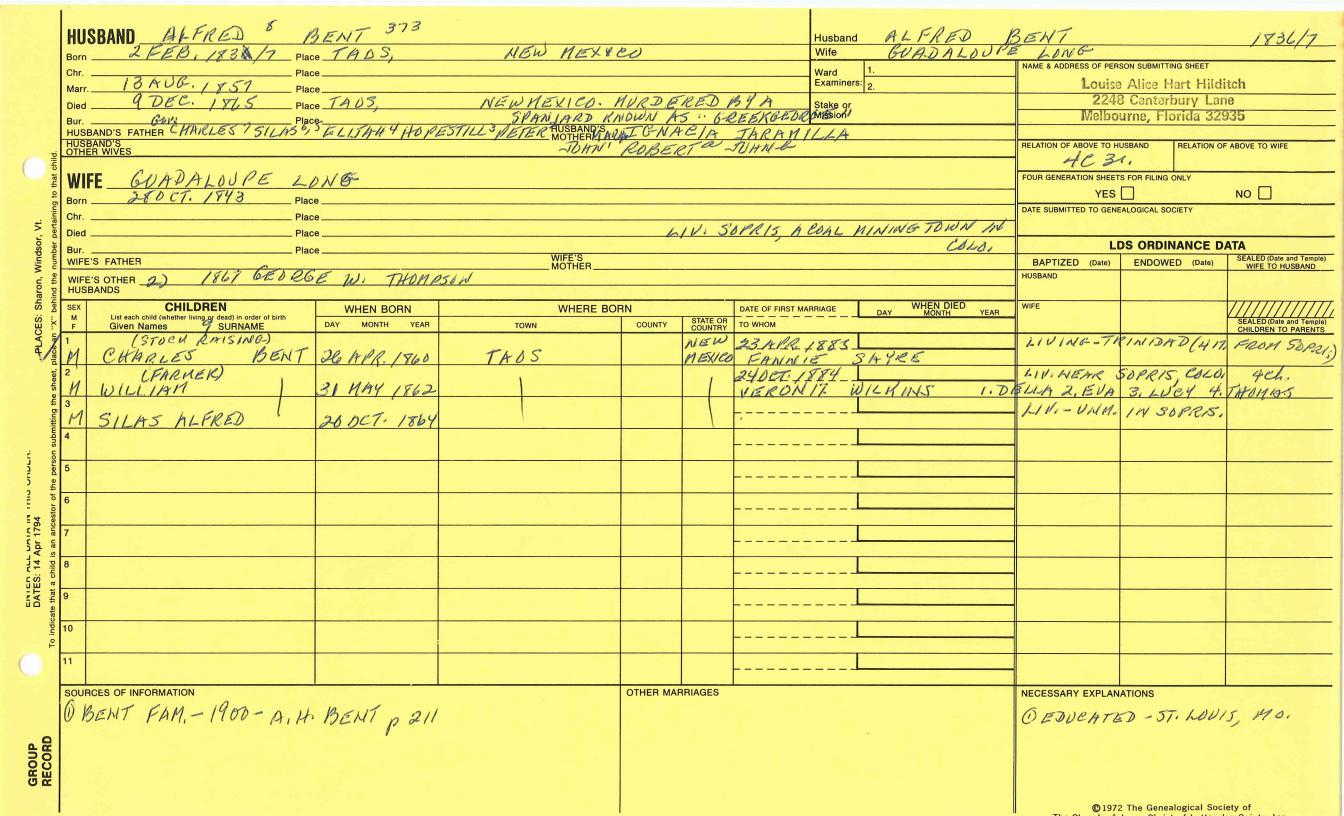 HUSBAND ALFRED 8 BENT 373
Born 2 FEB. 1836/7 Place TAOS, NEW MEXICO
Chr. Place
Marr. 13 AUG. 1857 Place
Died 9 DEC. 1865 Place TAOS, NEW MEXICO. MURDERED BY A
Bur. Place SPANIARD KNOWN AS "GREEK GEORGE"
Gov.
HUSBAND'S FATHER CHARLES 7 SILAS 6, 5 ELIJAH 4 HOPESTILL 3 PETER HUSBAND'S MOTHER MARIA IGNACIA JARAMILLA
HUSBAND'S OTHER WIVES JOHN 1 ROBERT a JOHN b
Husband ALFRED BENT 1836/7
Wife GUADALOUPE LONG
Ward Examiners: 1.
2.
Stake or Mission
NAME & ADDRESS OF PERSON SUBMITTING SHEET
Louise Alice Hart Hilditch
2248 Canterbury Lane
Melbourne, Florida 32935
RELATION OF ABOVE TO HUSBAND RELATION OF ABOVE TO WIFE
4C 3r.
FOUR GENERATION SHEETS FOR FILING ONLY
YES NO
DATE SUBMITTED TO GENEALOGICAL SOCIETY
WIFE GUADALOUPE LONG
Born 28 OCT. 1843 Place
Chr. Place
Died Place LIV. SOPRIS, A COAL MINING TOWN IN
Bur. Place COLO.
WIFE'S FATHER WIFE'S MOTHER
WIFE'S OTHER HUSBANDS 2) 1867 GEORGE W. THOMPSON
LDS ORDINANCE DATA
BAPTIZED (Date) ENDOWED (Date) SEALED (Date and Temple) WIFE TO HUSBAND
HUSBAND
WIFE
SEALED (Date and Temple) CHILDREN TO PARENTS
SEX M F CHILDREN WHEN BORN WHERE BORN DATE OF FIRST MARRIAGE WHEN DIED
List each child (whether living or dead) in order of birth
Given Names 9 SURNAME DAY MONTH YEAR TOWN COUNTY STATE OR COUNTRY TO WHOM DAY MONTH YEAR
1 (STOCK RAISING) NEW 23 APR. 1883 LIVING-TRINIDAD (4 M. FROM SOPRIS)
M CHARLES BENT 26 APR. 1860 TAOS MEXICO FANNIE SAYRE
2 (FARMER) 24 OCT. 1884 LIV. NEAR SOPRIS, COLO. 4 CH.
M WILLIAM 31 MAY 1862 WILKINS 1. DELLA 2. EVA 3. LUCY 4. THOMAS
3 LIV.-UNM. IN SOPRIS.
M SILAS ALFRED 20 OCT. 1864
4
5
6
7
8
9
10
11
SOURCES OF INFORMATION
① BENT FAM. - 1900 - A.H. BENT p 211
OTHER MARRIAGES
NECESSARY EXPLANATIONS
① EDUCATED - ST. LOUIS, MO.
©1972 The Genealogical Society of
PLACES: Sharon, Windsor, Vt.
DATES: 14 Apr 1794
To indicate that a child is an ancestor of the person submitting the sheet, place an "X" behind the number pertaining to that child.
GROUP RECORD